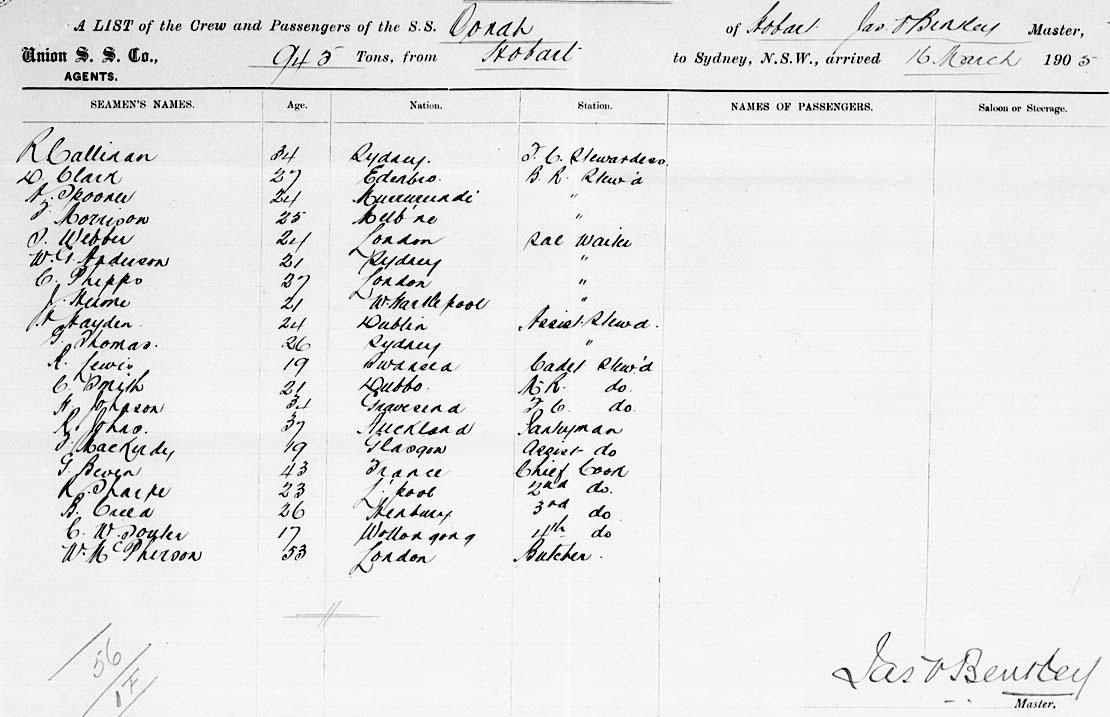 A LIST of the Crew and Passengers of the S.S. Oonah of Hobart Jas. O Bentley Master,
Union S. S. Co., AGENTS. 945 Tons, from Hobart to Sydney, N.S.W., arrived 16 March 1905
SEAMEN'S NAMES. Age. Nation. Station. NAMES OF PASSENGERS. Saloon or Steerage.
R Callinan 34 Sydney. F. C. Stewardess.
D. Clark 27 Edenbro. B. R. Stew'd
Spooner 24 Murrurundi "
Morrison 25 Melb'ne "
Webber 24 London Sal Waiter
W. Anderson 21 Sydney "
C. Phipps 27 London "
J. Hulme 21 W. Hartlepool "
Hayden 24 Dublin Assist Stewd.
Thomas. 26 Sydney "
R. Lewis 19 Swansea Cadet Stew'd
C. Smith 21 Dubbo. do.
H. Johnson 34 Gravesend F. C. do.
R. Johns. 37 Auckland Pantryman
19 Glasgow Assist do
G. Bevin 43 France Chief Cook
Sharpe 23 L'pool 2nd do.
B. Creed 26 3rd do
C. W. 17 Wollongong 4th do
W. McPherson 53 London Butcher.
56
1 F
Jas O Bentley
Master.